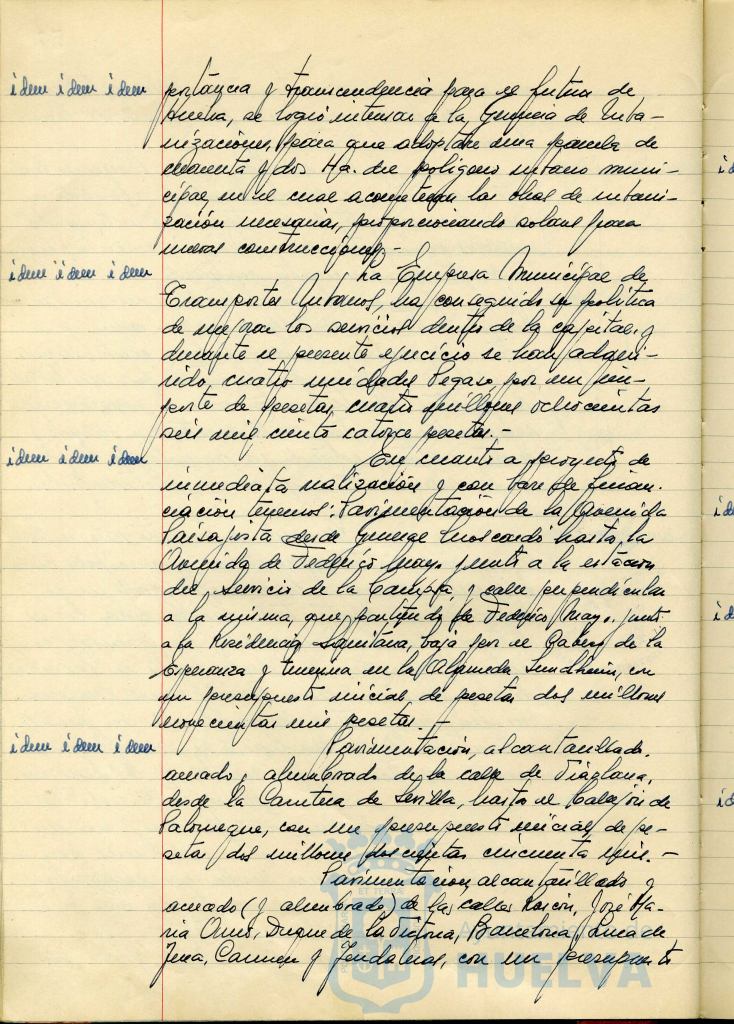 idem idem idem
portancia y transcendencia para el futuro de
Huelva, se logró interesar a la Gerencia de Urba-
nizaciones, para que adoptase una parcela de
cuarenta y dos Ha. del polígono urbano muni-
cipal, en el cual acometerán las obras de urbani-
zación necesarias, proporcionando solares para
nuevas construcciones.-
idem idem idem
La Empresa Municipal de
Transportes Urbanos, ha conseguido su política
de mejorar los servicios dentro de la capital, y
durante el presente ejercicio se han adqui-
rido, cuatro unidades Pegaso por un im-
porte de pesetas, cuatro millones ochocientas
seis mil ciento catorce pesetas.-
idem idem idem
En cuanto a proyectos de
inmediata realización y con base de finan-
ciación tenemos: Pavimentación de la Avenida
Paisajista desde General Moscardó hasta la
Avenida de Federico Mayo junto a la estación
de servicio de la Campsa, y calle perpendicular
a la misma, que partiendo de Federico Mayo, junto
a la Residencia Sanitaria, baja por el Cabezo de la
Esperanza y termina en la Alameda Sundheim, con
un presupuesto inicial de pesetas dos millones
novecientas mil pesetas.-
idem idem idem
Pavimentación, alcantarillado,
acerado y alumbrado de la calle de
desde la Carretera de Sevilla, hasta el Callejón de
Palomeque, con un presupuesto inicial de pe-
setas dos millones doscientas cincuenta mil.-
Pavimentación, alcantarillado y
acerado (y alumbrado) de las calles Rascón, José Ma-
ria Amo, Duque de la Victoria, Barcelona, Lucía de
Jena, Carmen y Fundadores, con un presupuesto
HUELVA